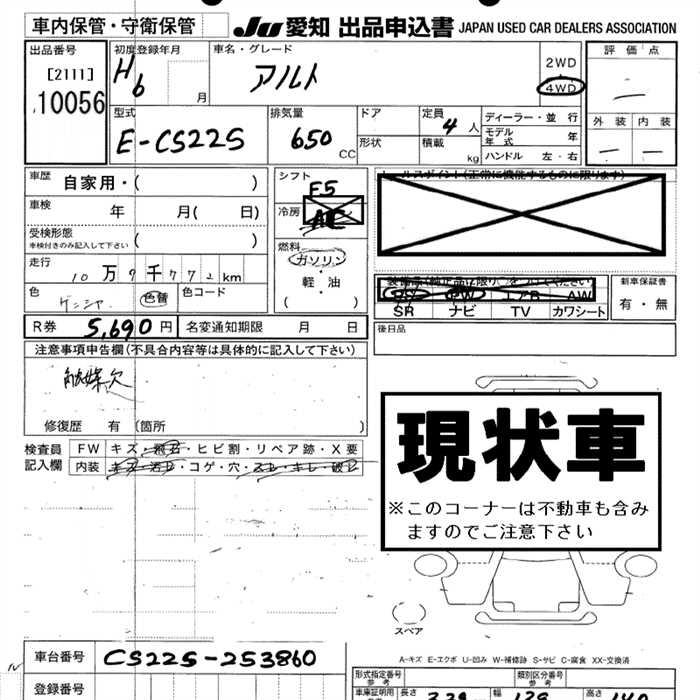 車内保管・守衛保管
JU 愛知 出品申込書 JAPAN USED CAR DEALERS ASSOCIATION
出品番号
[2111]
10056
初度登録年月
H6
月
車名・グレード
アルト
2WD
4WD
評価点
外装 内装
型式
E-CS22S
排気量
650
CC
ドア
形状
定員
4人
積載
kg
ディーラー・並行
モデル年式
年
ハンドル 左・右
車歴 自家用・( )
車検 年 月( 日)
受検形態
※車検付きのみ記入して下さい ( )
走行 10万9千772km
色
ゲンシャ
色替
色コード
シフト
F5
冷房
AC
燃料
ガソリン
軽・油
( )
セールスポイント(正常に機能するものに限ります)
SR ナビ TV カワシート
エアB AW
新車保証書
有・無
R券 5,690 円 名変通知期限 月 日
後日品
注意事項申告欄(不具合内容等は具体的に記入して下さい)
触媒欠
修復歴 有 (箇所 )
検査員
記入欄
FW キズ・飛石・ヒビ割・リペア跡・X要
内装 キズ・汚レ・コゲ・穴・スレ・キレ・破レ
現状車
※このコーナーは不動車も含み
ますのでご注意下さい
スペア
A-キズ E-エクボ U-凹み W-補修跡 S-サビ C-腐食 XX-交換済
車台番号 CS22S-253860
登録番号
型式指定番号
参考
類別区分番号
参考
車庫証明用
長さ 幅 高さ